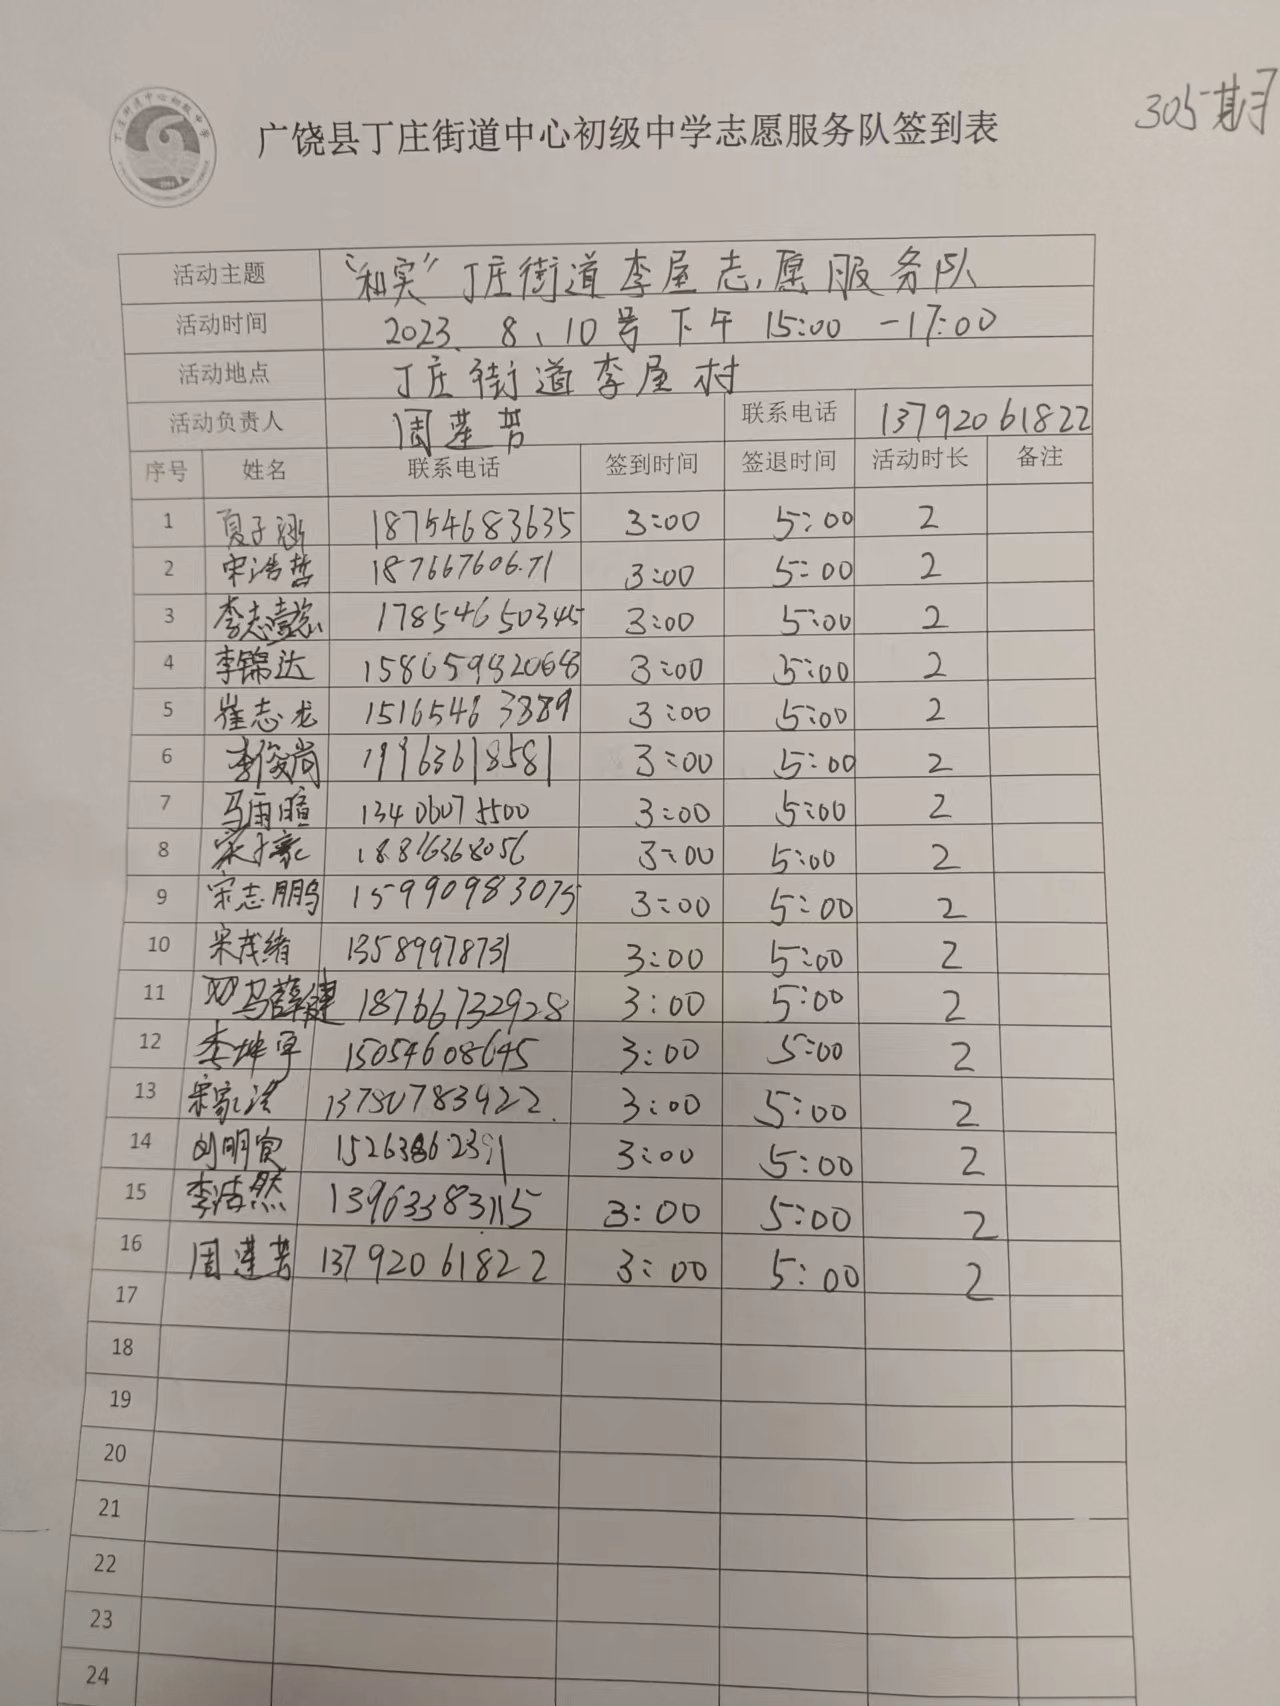 305期
广饶县丁庄街道中心初级中学志愿服务队签到表
活动主题 “和实”丁庄街道李屋志愿服务队
活动时间 2023、8、10号下午 15:00 -17:00
活动地点 丁庄街道李屋村
活动负责人 周莲芳 联系电话 13792061822
序号 姓名 联系电话 签到时间 签退时间 活动时长 备注
1 夏子涵 18754683635 3:00 5:00 2
2 宋浩哲 18766760671 3:00 5:00 2
3 李志懿 17854650345 3:00 5:00 2
4 李锦达 15865982068 3:00 5:00 2
5 崔志龙 15165463889 3:00 5:00 2
6 李俊尚 19963618581 3:00 5:00 2
7 马雨暄 13406075500 3:00 5:00 2
8 宋子豪 18816368056 3:00 5:00 2
9 宋志鹏 15990983075 3:00 5:00 2
10 宋茂绪 13589978731 3:00 5:00 2
11 马薛健 18766732928 3:00 5:00 2
12 李坤宇 15054608645 3:00 5:00 2
13 宋家 3:00 5:00 2
14 刘明 15263862391 3:00 5:00 2
15 李浩然 13963383115 3:00 5:00 2
16 周莲芳 13792061822 3:00 5:00 2
17
18
19
20
21
22
23
24